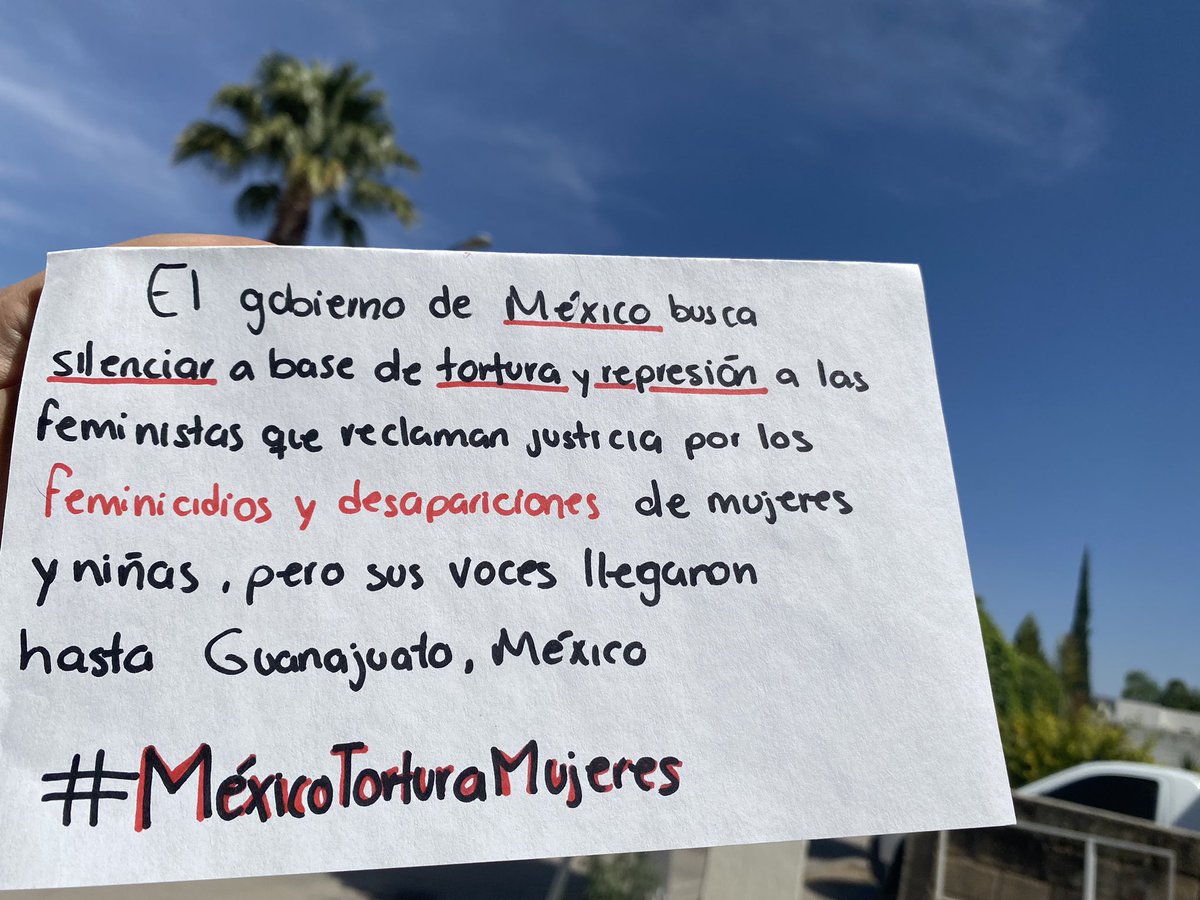 El gobierno de México busca
silenciar a base de tortura y represión a las
feministas que reclaman justicia por los
feminicidios y desapariciones de mujeres
y niñas, pero sus voces llegaron
hasta Guanajuato, México
#MéxicoTorturaMujeres